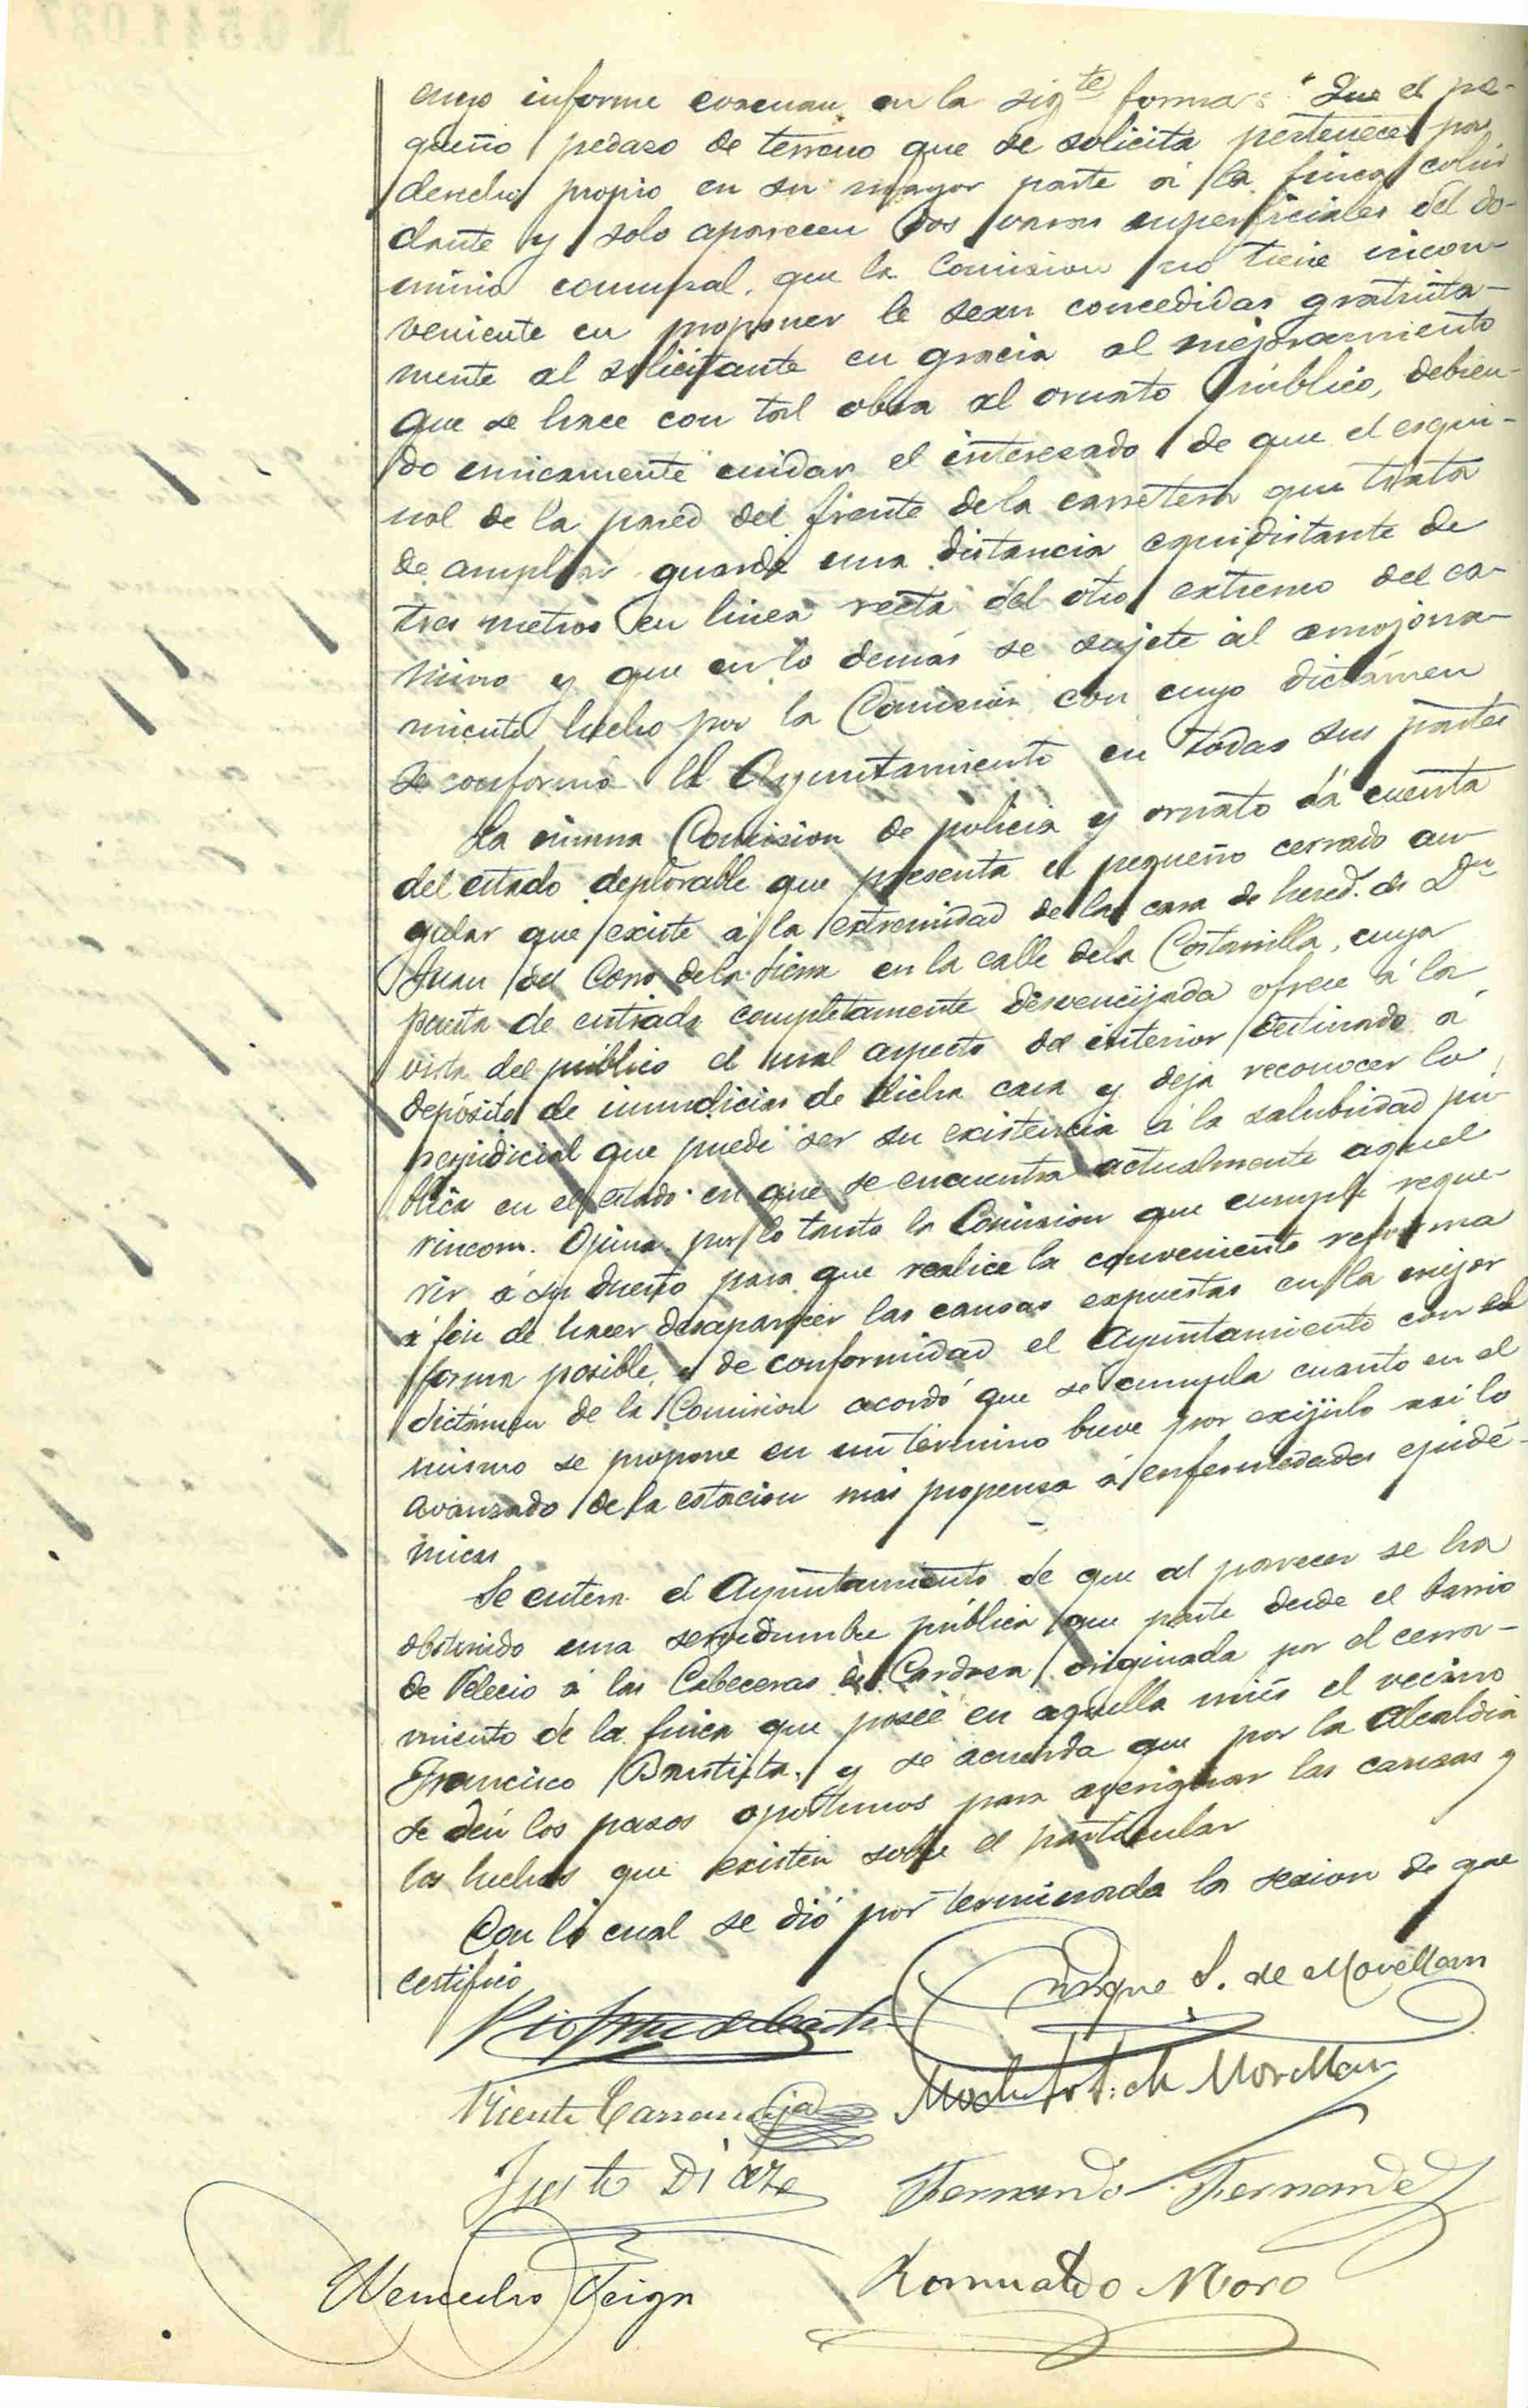 cuyo informe evacuan en la sigte forma: "Que el pe-
queño pedazo de terreno que se solicita pertenece por
derecho propio en su mayor parte á la finca colin
dante y solo aparecen dos varas superficiales del do-
minio comunal, que la Comision no tiene incon-
veniente en proponer le sean concedidas gratuita-
mente al solicitante en gracia al mejoramiento
que se hace con tal obra al ornato público, debien-
do unicamente cuidar el interesado de que el esqui-
nal de la pared del frente de la carretera que trata
de ampliar guarde una distancia equidistante de
tres metros en linea recta del otro extremo del ca-
mino y que en lo demás se sujete al amojona-
miento hecho por la Comisión con cuyo dictámen
se conformó el Ayuntamiento en todas sus partes
La misma Comision de policia y ornato dá cuenta
del estado deplorable que presenta el pequeño cerrado an-
gular que existe á la extremidad de la casa de hered. de Dn
Juan del Corro de la Sierra en la calle de la Costanilla, cuya
puerta de entrada completamente desvencijada ofrece á la
vista del público el mal aspecto del interior destinado á
depósito de inmundicias de dicha casa y deja reconocer lo
perjudicial que puede ser su existencia á la salubridad pú-
blica en el estado en que se encuentra actualmente aquel
rincon. Opina por lo tanto la Comision que cumple reque-
rir á su dueño para que realice la conveniente reforma
á fin de hacer desaparecer las causas expuestas en la mejor
forma posible, y de conformidad el Ayuntamiento con el
dictámen de la Comision acordó que se cumpla cuanto en el
mismo se propone en un término breve por exijirlo asi lo
avanzado de la estacion más propensa á enfermedades epidé-
micas
Se entera el Ayuntamiento de que al parecer se ha
obstruido una servidumbre pública que parte desde el barrio
de Velecio á las Cabeceras de originada por el cerra-
miento de la finca que posée en aquella miés el vecino
Francisco Bautista, y se acuerda que por la Alcaldia
se dén los pasos oportunos para averiguar las causas y
los hechos que existen sobre el particular
Con lo cual se dió por terminada la sesion de que
certifico
Enrique S. de Movellan
Vicente Carranceja
Modesto S. de Movellan
Justo Diaz
Fernando Fernandez
Wenceslao Veiga
Romualdo Moro